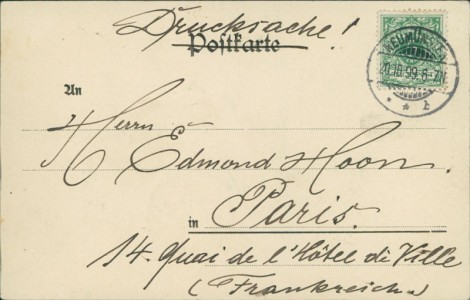 Drucksache!
Postkarte
NEUMÜNSTER
20.10.99.6-7N.
An
Herrn
Edmond Hoon.
in Paris.
14. Quai de l'Hôtel di Ville
(Frankreich)